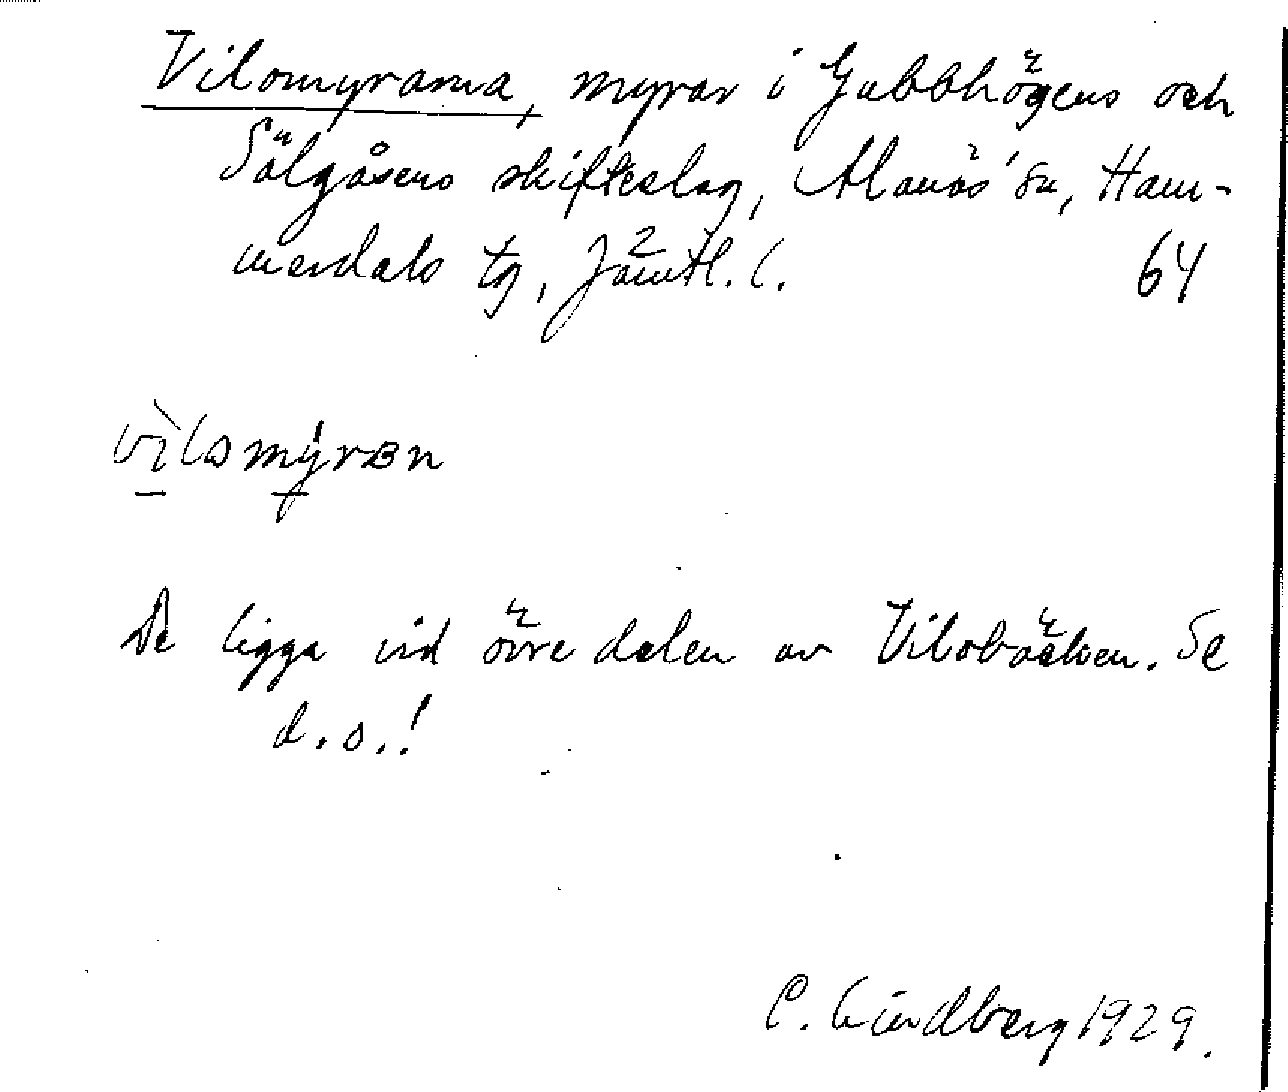 Vilomyrarna, myrar i Gubbhögens och
Sälgåsens skifteslag, Alanäs' sn, Ham-
merdals tg, Jämtl. l. 64
vìlomýrɐn
De ligga vid övre delen av Vilobäcken. Se
d. o.!
C. Lindberg 1929.